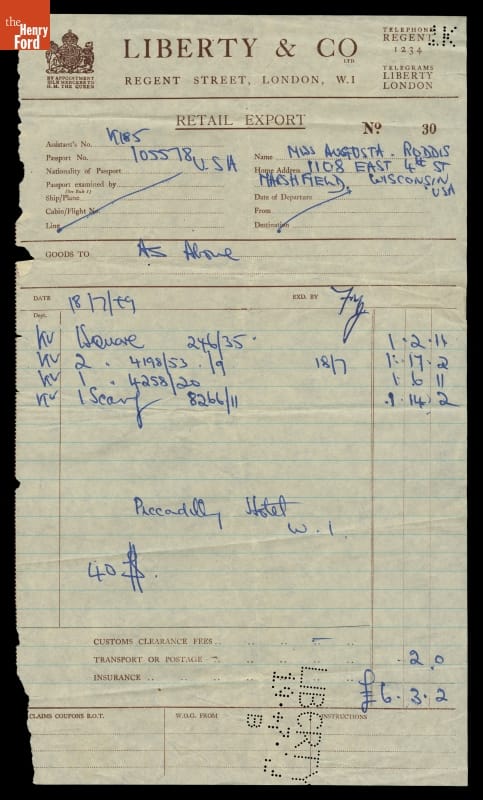 the
Henry
Ford
BY APPOINTMENT
SILK MERCERS TO
H.M. THE QUEEN
LIBERTY & CO LTD
REGENT STREET, LONDON, W.1
TELEPHONE
REGENT
1234
TELEGRAMS
LIBERTY
LONDON
LK
RETAIL EXPORT
No 30
Assistant's No. K185
Passport No. 105578
Nationality of Passport USA
Passport examined by
(See Rule 1)
Ship/Plane
Cabin/Flight No.
Line
Name MISS AUGUSTA. RODDIS
Home Address 1108 EAST 4th ST
MARSHFIELD, WISCONSIN,
USA
Date of Departure
From
Destination
GOODS TO As Above
DATE 18/7/49
EXD. BY
Dept.
KV 1 Square 246/35 1.2.11
KV 2 " 4198/53 /9 18/7 1.17.2
KV 1 " 4258/20 1 6 11
KV 1 Scarf 8266/11 1.14.2
Piccadilly Hotel
W.1.
40 $
CUSTOMS CLEARANCE FEES .. –
TRANSPORT OR POSTAGE 2.0
INSURANCE
£6.3.2
LIBERTY
B
CLAIMS COUPONS B.O.T.
W.O.G. FROM
INSTRUCTIONS